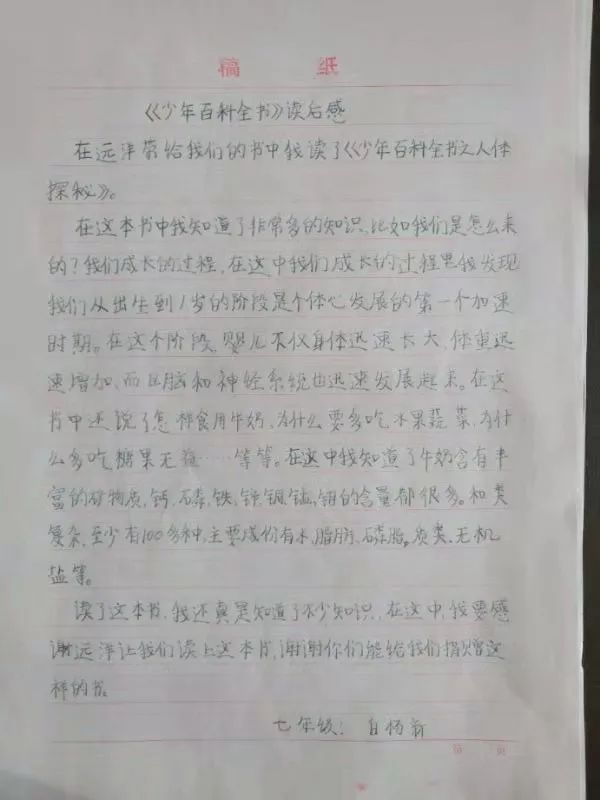 稿 纸
《少年百科全书》读后感
在远洋带给我们的书中我读了《少年百科全书之人体
探秘》。
在这本书中我知道了非常多的知识,比如我们是怎么来
的?我们成长的过程,在这中我们成长的过程里我发现
我们从出生到1岁的阶段是个体心发展的第一个加速
时期。在这个阶段,婴儿不仅身体迅速长大,体重迅
速增加,而且脑和神经系统也迅速发展起来。在这
书中还说了怎样食用牛奶,为什么要多吃水果蔬菜,为什
么多吃糖果无益……等等。在这中我知道了牛奶含有丰
富的矿物质,钙,磷,铁,锌,铜,锰,钼的含量都很多。和类
复杂,至少有100多种,主要成份有水,脂肪,磷脂,质类,无机
盐等。
读了这本书,我还真是知道了不少知识,在这中,我要感
谢远洋让我们读上这本书,谢谢你们能给我们捐赠这
样的书。
七年级:
第 页